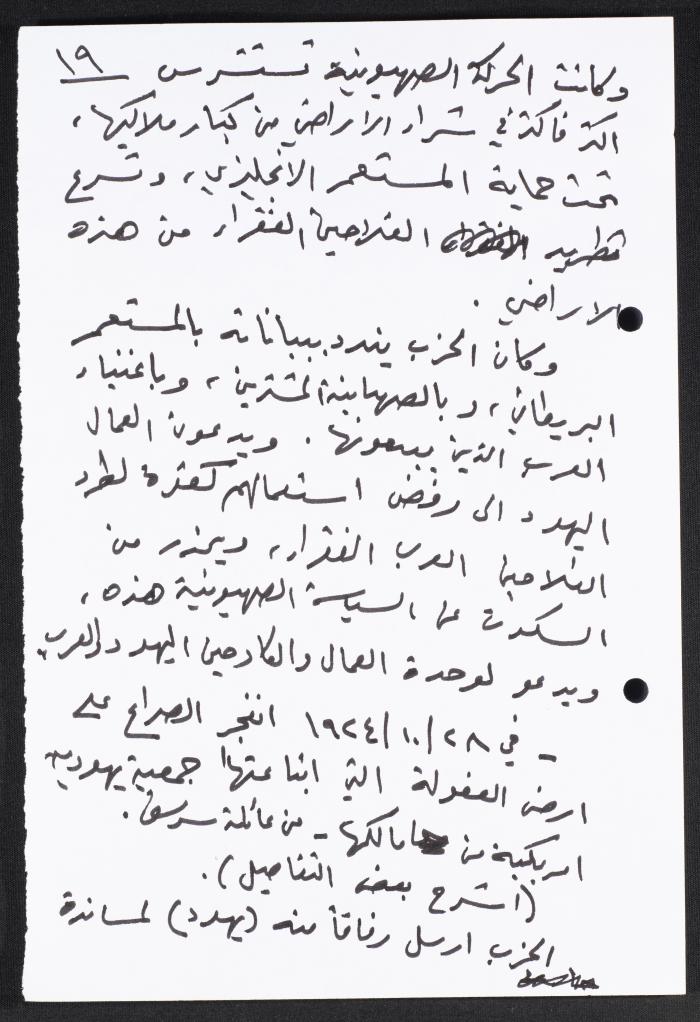 ١٩
وكانت الحركة الصهيونية تستشرس
اكثر فاكثر في شراء الاراضي من كبار ملاكيها،
تحت حماية المستعمر الانجليزي، وتسرع
بطرد الفلاحين الفقراء من هذه
الاراضي.
وكان الحزب يندد ببياناته بالمستعمر
البريطاني، وبالصهاينة المشترين، وباغنياء
العرب الذين يبيعونها. ويدعون العمال
اليهود الى رفض استعمالهم كقوة لطرد
الفلاحين العرب الفقراء، ويحذر من
السكوت عن السياسة الصهيونية هذه،
ويدعو لوحدة العمال والكادحين اليهود والعرب
- في ٢٨/١٠/١٩٢٤ انفجر الصراع على
ارض العفولة التي ابتاعتها جمعية يهودية
امريكية من مالكها - من عائلة سرسق.
(اشرح بعض التفاصيل).
الحزب ارسل رفاقاً منه (يهود) لمساندة